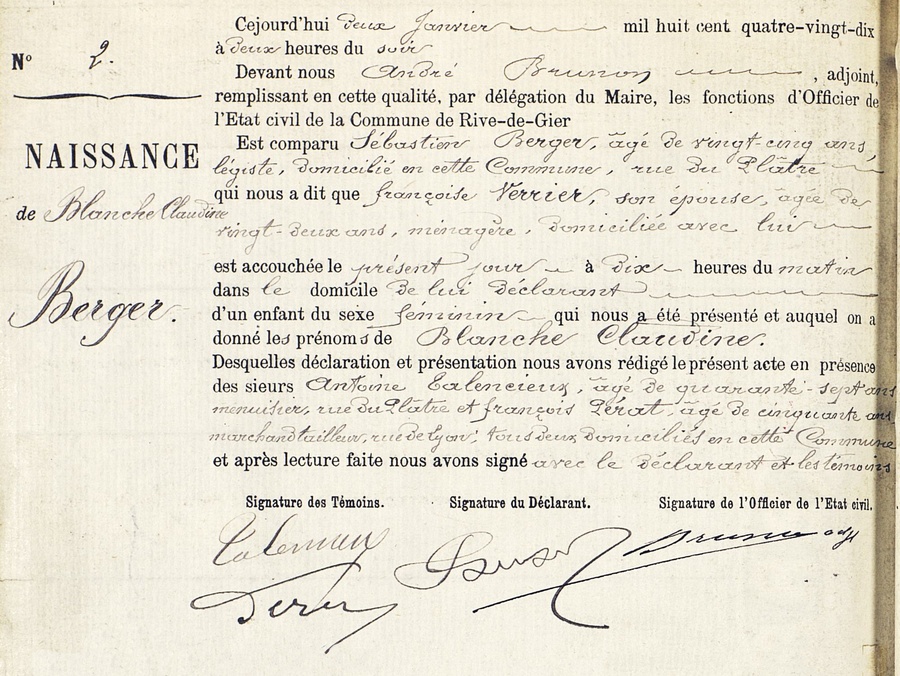 Cejourd'hui deux Janvier mil huit cent quatre-vingt-dix
à deux heures du soir
Nº 2.
Devant nous André Brunon, adjoint,
remplissant en cette qualité, par délégation du Maire, les fonctions d'Officier de
l'Etat civil de la Commune de Rive-de-Gier
NAISSANCE
Est comparu Sébastien Berger, âgé de vingt-cinq ans,
légiste, domicilié en cette Commune, rue du Plâtre
qui nous a dit que françoise Verrier, son épouse, agée de
de Blanche Claudine
vingt-deux ans, ménagère, domiciliée avec lui
est accouchée le présent jour à dix heures du matin
dans le domicile de lui déclarant
Berger.
d'un enfant du sexe féminin qui nous a été présenté et auquel on a
donné les prénoms de Blanche Claudine.
Desquelles déclaration et présentation nous avons rédigé le présent acte en présence
des sieurs Antoine Talencieux, âgé de quarante-sept ans
menuisier, rue du Plâtre et françois Pérat, âgé de cinquante ans
marchand tailleur, rue de Lyon, tous deux domiciliés en cette Commune
et après lecture faite nous avons signé avec le déclarant et les témoins
Signature des Témoins. Signature du Déclarant. Signature de l'Officier de l'Etat civil.